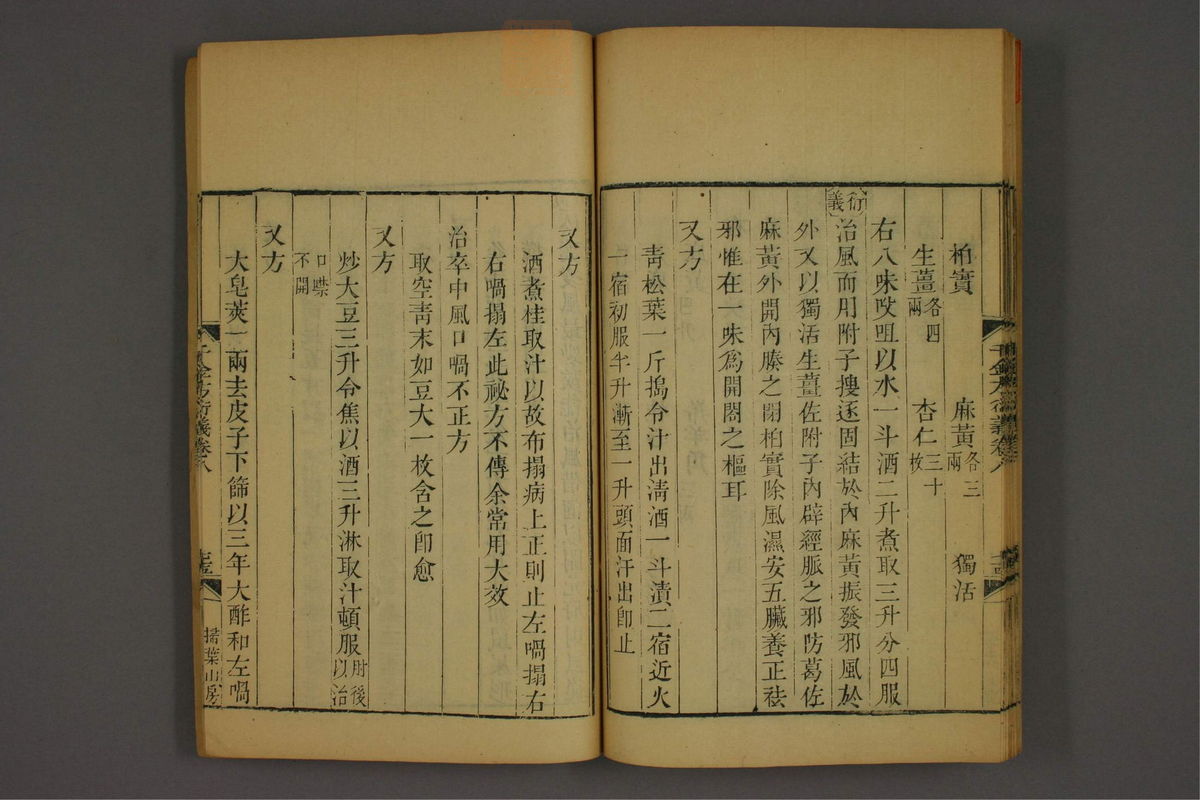 柏實 麻黃各三兩 獨活
生薑各四兩 杏仁三十枚
右八味㕮咀以水一斗酒二升煮取三升分四服
衍義 治風而用附子摟逐固結於內麻黃振發邪風於
外又以獨活生薑佐附子內辟經脈之邪防葛佐
麻黃外開內腠之閉柏實除風濕安五臟養正祛
邪惟在一味爲開閤之樞耳
又方
靑松葉一斤搗令汁出淸酒一斗漬二宿近火
一宿初服半升漸至一升頭面汗出卽止
又方
酒煮桂取汁以故布搨病上正則止左喎搨右
右喎搨左此祕方不傳余常用大效
治卒中風口喎不正方
取空靑末如豆大一枚含之卽愈
又方
炒大豆三升令焦以酒三升淋取汁頓服肘後以治
口噤不開
又方
大皂莢一兩去皮子下篩以三年大酢和左喎
千金方衍義卷八
掃葉山房